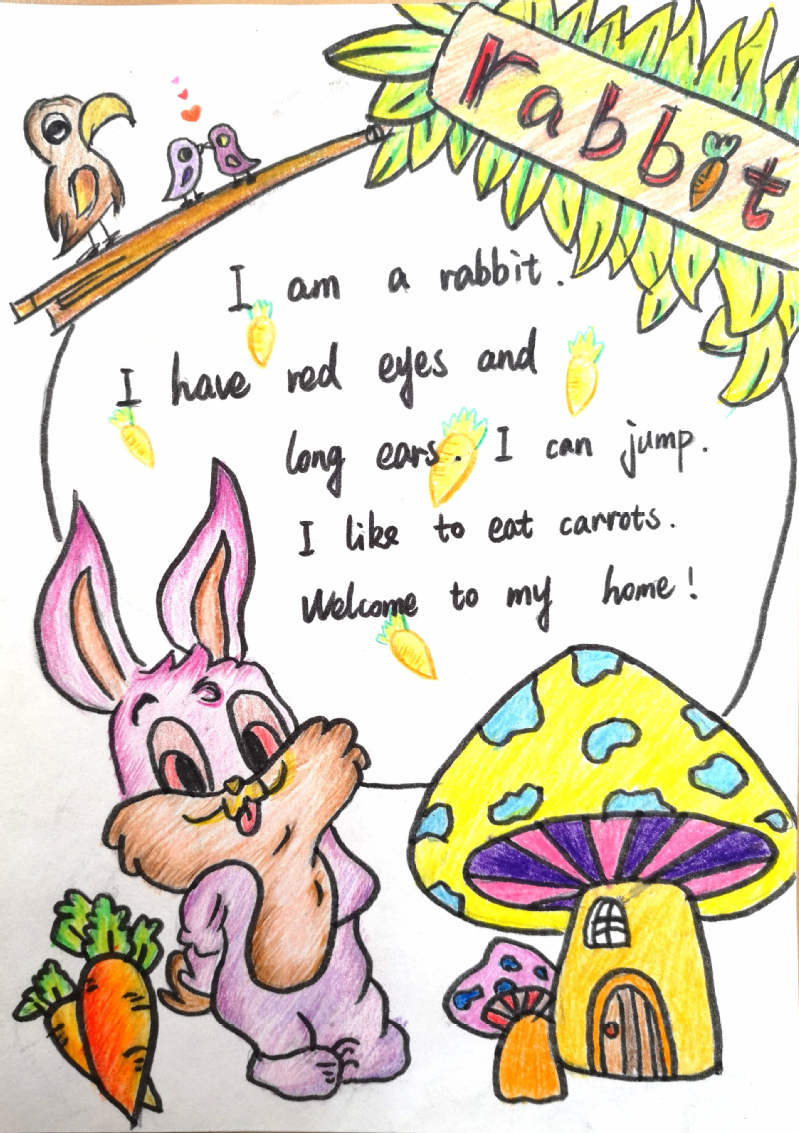 rabbit
I am a rabbit.
I have red eyes and
long ears. I can jump.
I like to eat carrots.
Welcome to my home!